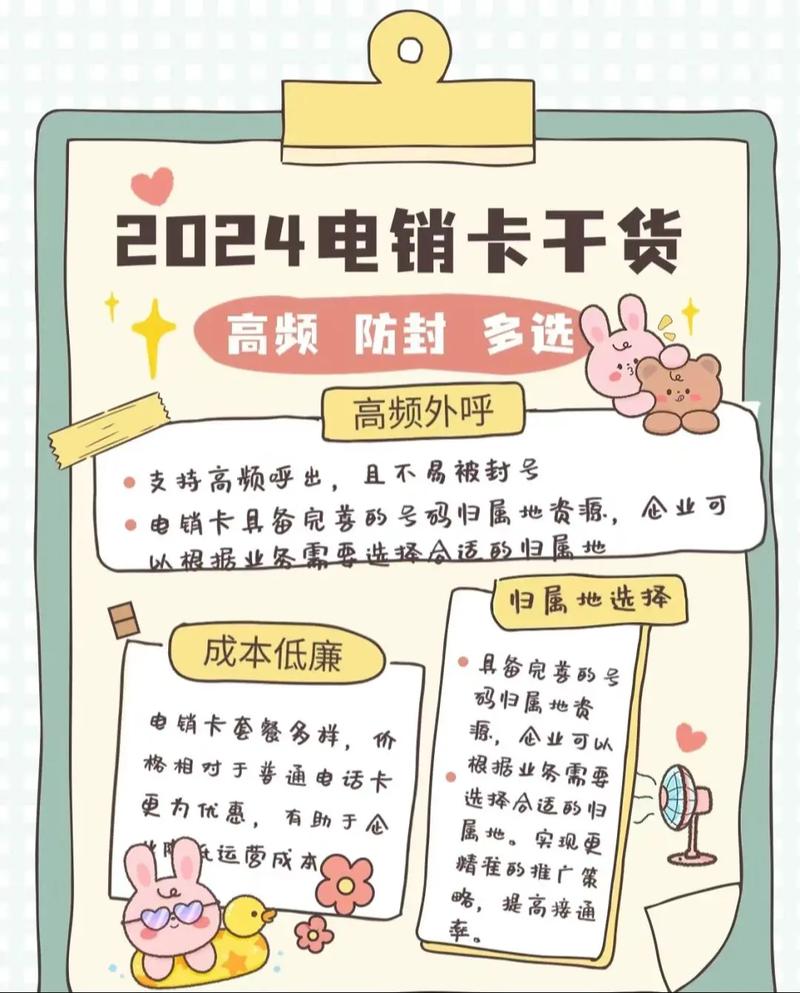 2024电销卡干货
高频 防封 多选
高频外呼
支持高频呼出，且不易被封号
电销卡具备完善的号码归属地资源，企业可
以根据业务需要选择合适的归属地
成本低廉
电销卡套餐多样，价
格相对于普通电话卡
更为优惠，有助于企
低运营成本
归属地选择
具备完善的号
码归属地资
源，企业可以
根据业务需要
选择合适的归
属地。实现更
精准的推广策
略，提高接通
率。